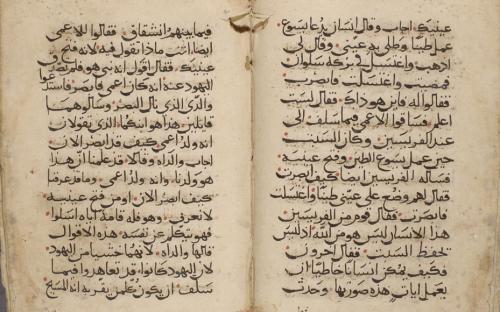 عينيك اجاب وقال انسان يدعا يسوع
عمل طينا وطلى به عيني وقال لي
اذهب واغتسل في بركه سلوان
فمضيت واغتسلت فابصرت
فقالوا له فاين هو ذاك فقال لست
اعلم فساقوا الاعمى فيما سلف الى
عند الفريسيين وكان السبت
حين عمل يسوع الطين وفتح عينيه
فساله الفريسيين ايضا كيف ابصرت
فقال لهم وضع على عيني طينا واغتسلت
فابصرت فقال قوم من الفريسيين
هذا الانسان ليس هو من الله اذ ليس
يحفظ السبت فقال اخرون
فكيف يمكن انسانا خاطيا ان
يعمل ايات هذه صورتها وحدث
فيما بينهم انشقاق فقالوا للاعمى
ايضا انت ماذا تقول فيه لانه فتح
عينيك فقال اقول انه نبي هو فلم يصدقوا
اليهود عنه انه كان اعمى فابصر فاستدعوا
والدي الذي نال البصر وسالوهما
قايلين هذا هو ابنكما الذي تقولان
انه ولد اعمى كيف قد ابصر الان
اجاب والداه وقالا قد علمنا ان هذا
هو ولدنا وانه ولد اعمى وما قد عرفنا
كيف ابصر الان او من فتح عينيه
لا نعرف وهو فله قامة اياه اسلوا
فهو يتكلم عن نفسه هذه الاقوال
قالها والداه لانهما خشيا من اليهود
لان اليهود كانوا قد تعاهدوا فيما
سلف ان يكون كلمن يقر به انه المسيح